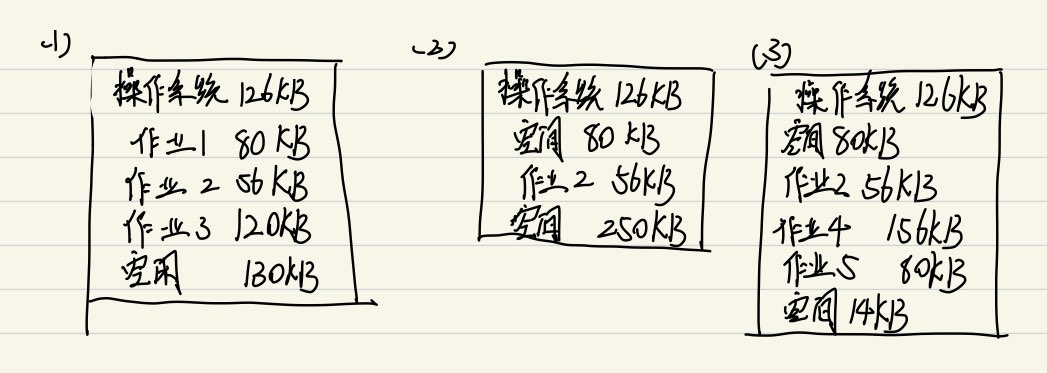 (1)
操作系统 126KB
作业1 80KB
作业2 56KB
作业3 120KB
空闲 130KB
(2)
操作系统 126KB
空闲 80KB
作业2 56KB
空闲 250KB
(3)
操作系统 126KB
空闲 80KB
作业2 56KB
作业4 156KB
作业5 80KB
空闲 14KB